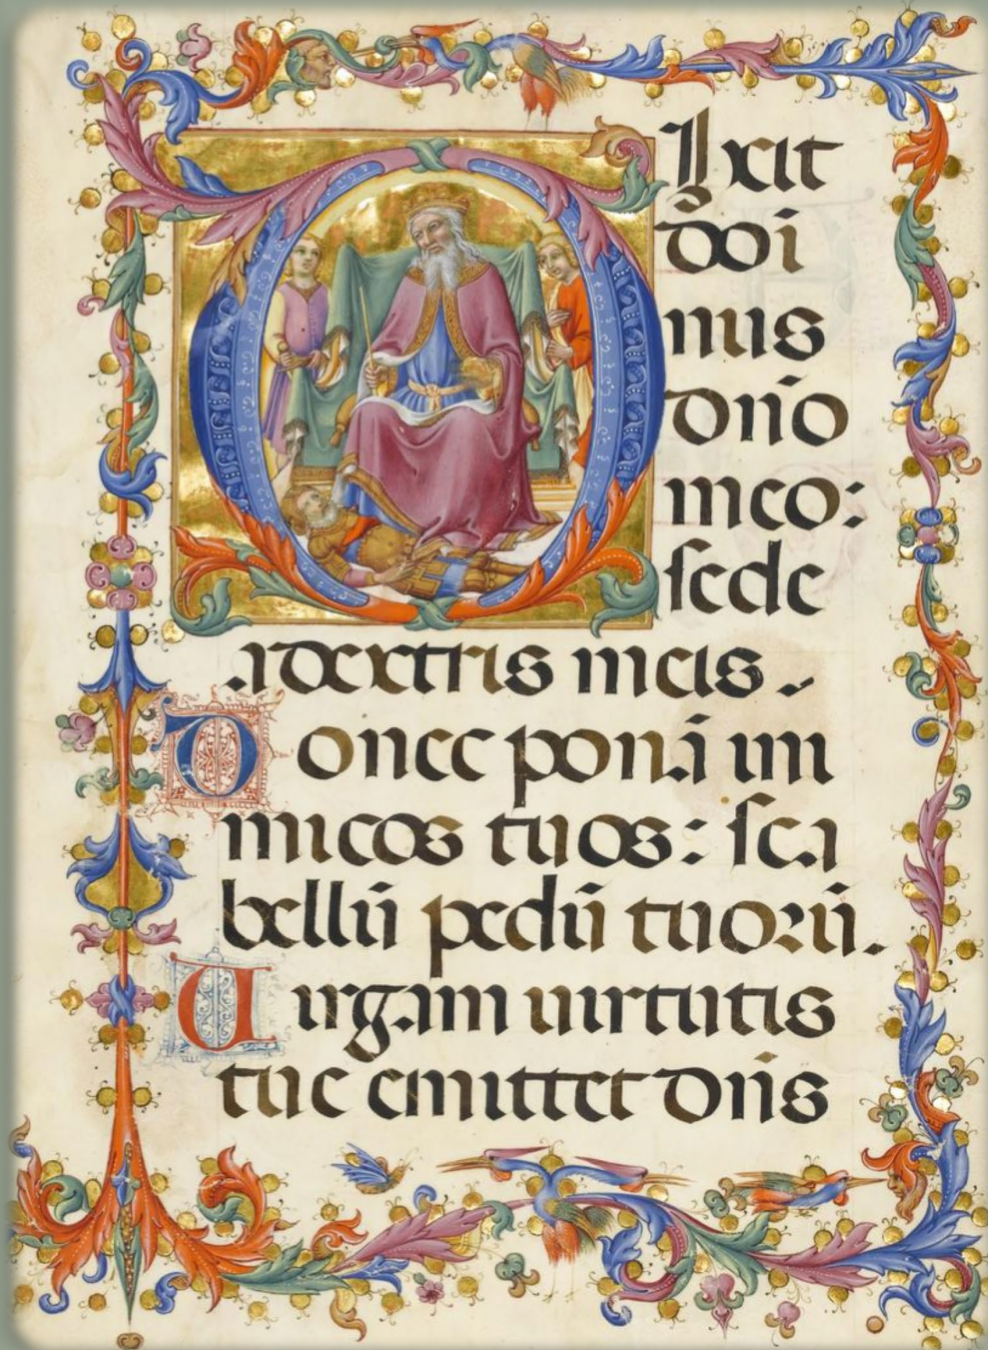 Dixit
doi
nus
dño
meo:
sede
a dextris meis.
Donec ponā ini
micos tuos: sca
bellū pedū tuorū.
Uirgam uirtutis
tue emittet dñs